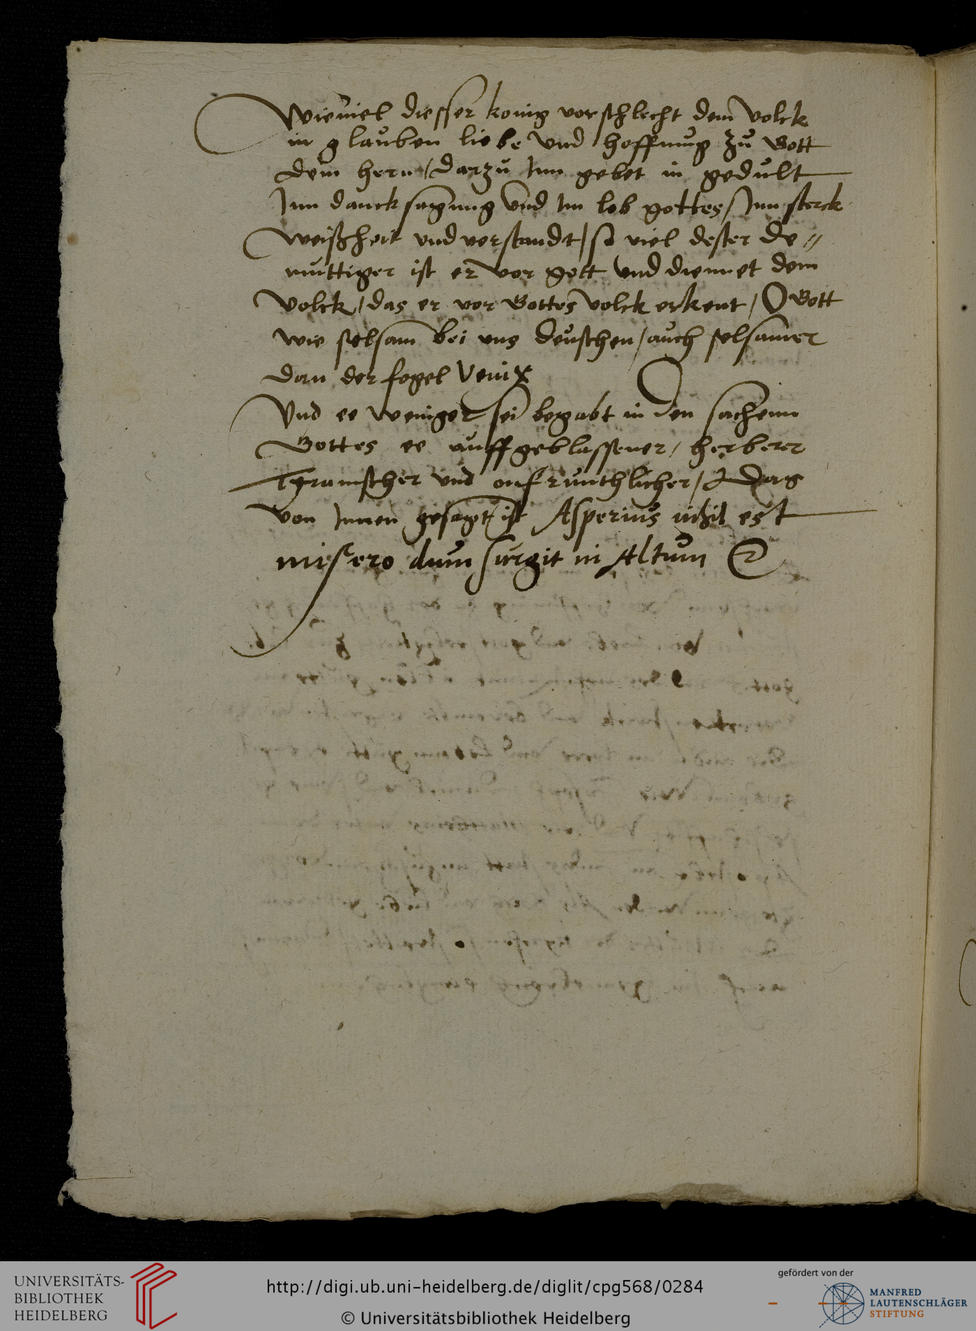 Wieuiel diesser konig vorschlecht dem Volck
in glauben liebe vnd hoffnug zu Gott
dem hern / darzu Inn gebet in gedult
Inn dancksagung vnd Im lob gottes / Inn sterck
Weißheit vnd vorstandt / so viel dester de//
muttiger ist er vor gott vnd diennet dem
Volck / das er vor Gottes volck erkent / O Gott
wie selsam bei vns deuschen / auch selsamer
dan der fogel Venix
Vnd ee weniger sei begabt in den sachenn
Gottes ee auffgeblassener / herberer
Tyranischer vnd onfrunthlicher / Das
von Innen gesagt ist Asperius nihil est
misero dum surgit in Altum
UNIVERSITÄTS-
BIBLIOTHEK
HEIDELBERG
http://digi.ub.uni-heidelberg.de/diglit/cpg568/0284
© Universitätsbibliothek Heidelberg
gefördert von der
MANFRED
LAUTENSCHLÄGER
STIFTUNG